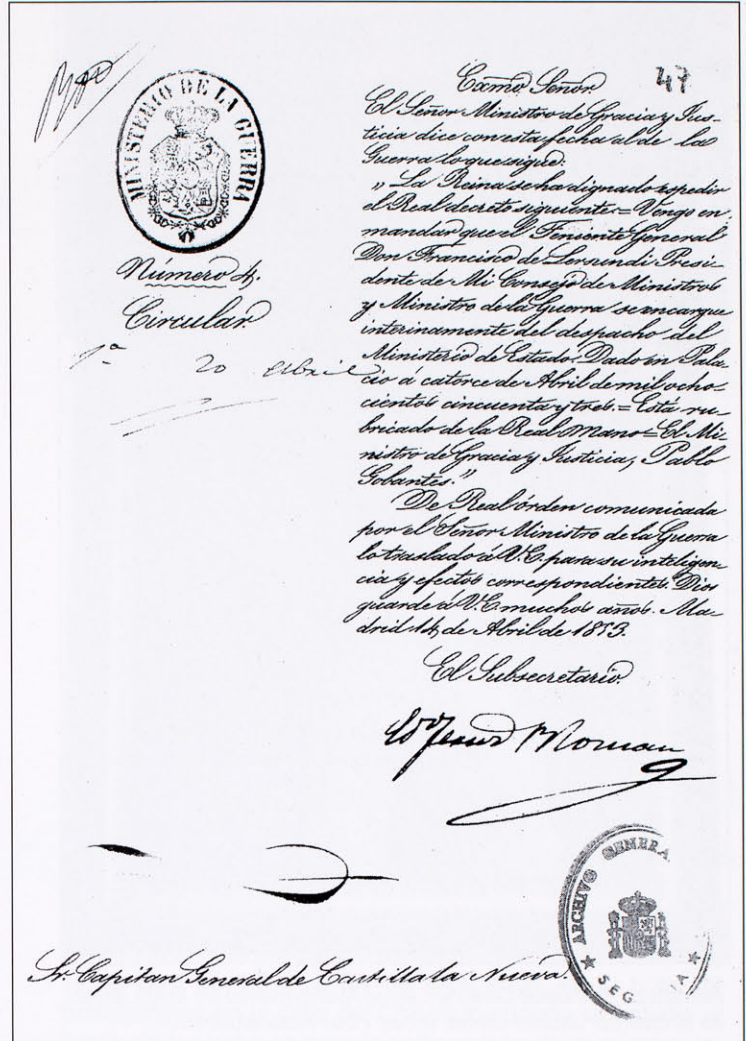 47
MINISTERIO DE LA GUERRA
Número 4.
Circular.
1ª 20 Abril
Exmo Señor
El Señor Ministro de Gracia y Jus-
ticia dice con esta fecha al de la
Guerra lo que sigue:
"La Reina se ha dignado espedir
el Real decreto siguiente = Vengo en
mandar que el Teniente General
Don Francisco de Lersundi Presi-
dente de Mi Consejo de Ministros
y Ministro de la Guerra se encargue
interinamente del despacho del
Ministerio de Estado. Dado en Pala-
cio á catorce de Abril de mil ocho-
cientos cincuenta y tres. = Está ru-
bricado de la Real Mano = El Mi-
nistro de Gracia y Justicia, Pablo
Gobantes."
De Real órden comunicada
por el Señor Ministro de la Guerra
lo traslado á V.E. para su inteligen-
cia y efectos correspondientes. Dios
guarde á V.E. muchos años. Ma-
drid 14 de Abril de 1853.
El Subsecretario.
Sr. Capitan General de Castilla la Nueva.
ARCHIVO GENERAL
SEGOVIA